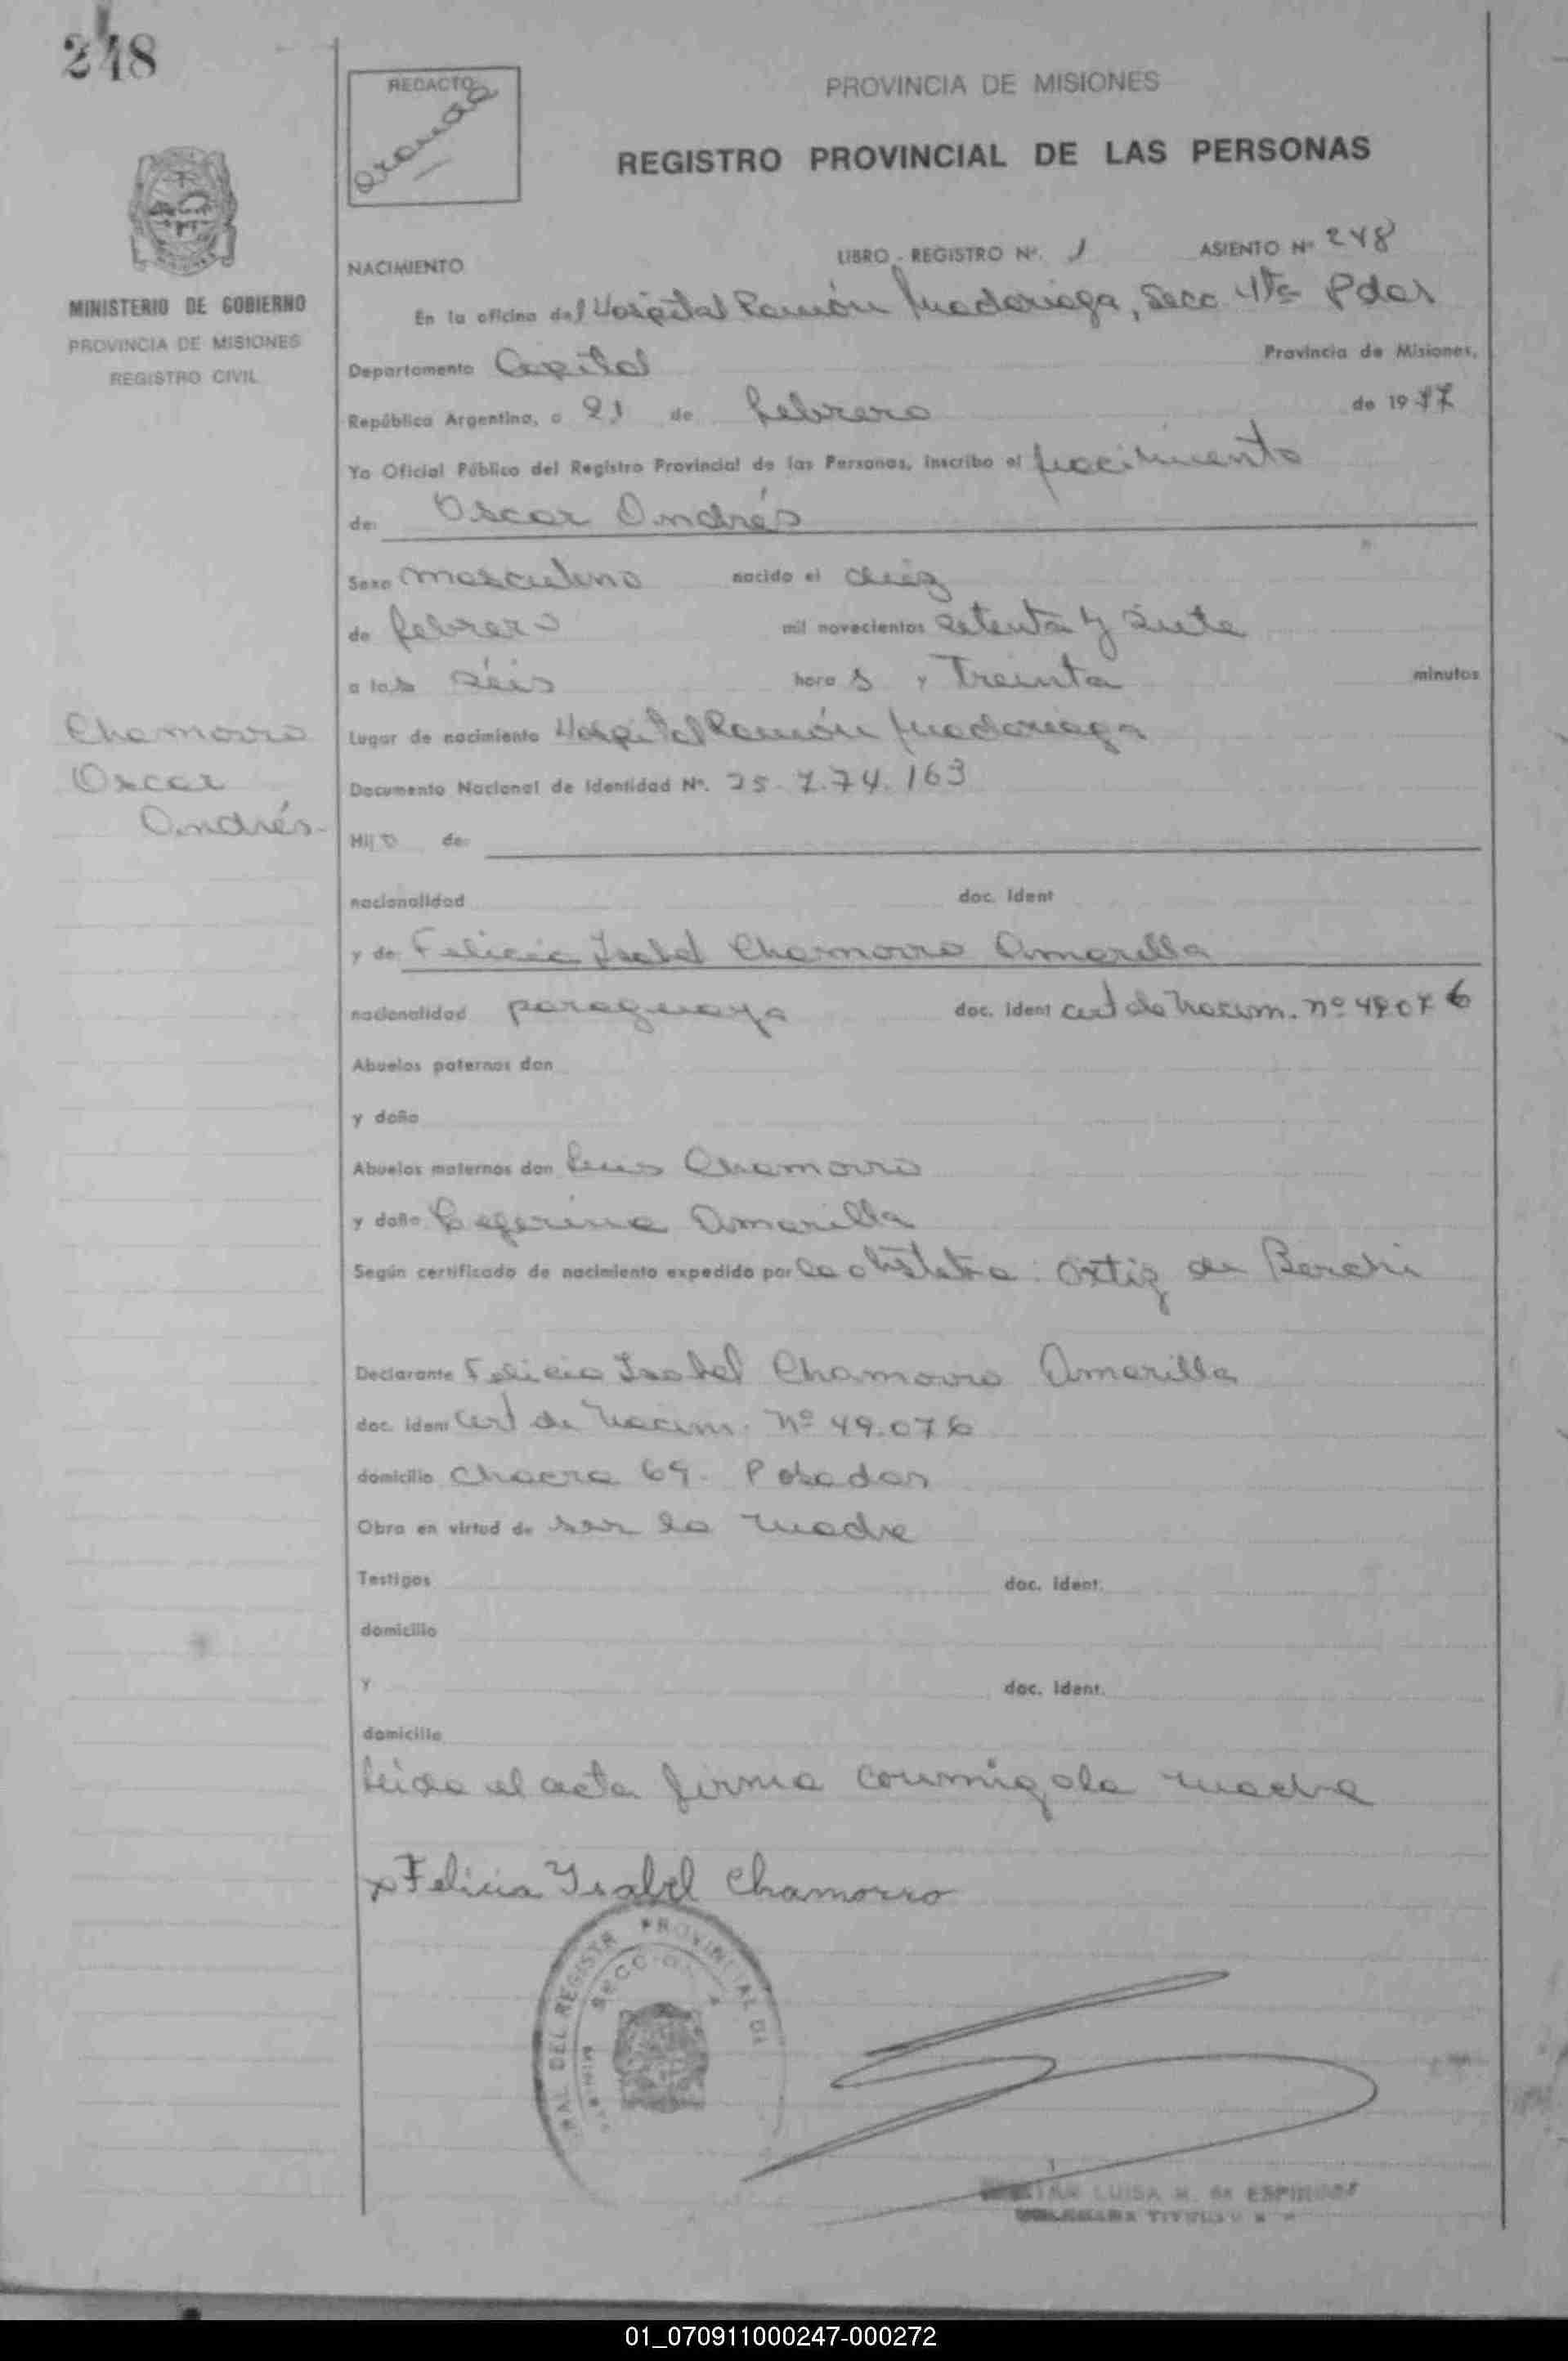 248
REDACTO
PROVINCIA DE MISIONES
REGISTRO PROVINCIAL DE LAS PERSONAS
MINISTERIO DE GOBIERNO
PROVINCIA DE MISIONES
REGISTRO CIVIL
NACIMIENTO LIBRO - REGISTRO Nº. 1 ASIENTO Nº 248
En la oficina del Hospital Ramón Madariaga, Secc 4ta Pdas
Departamento Capital Provincia de Misiones,
República Argentina, a 21 de febrero de 1977
Yo Oficial Público del Registro Provincial de las Personas, inscribo el nacimiento
de: Oscar Andrés
Sexo masculino nacido el diez
de febrero mil novecientos setenta y siete
a las seis hora s y Treinta minutos
Lugar de nacimiento Hospital Ramón Madariaga
Chamorro
Oscar
Andrés-
Documento Nacional de Identidad Nº. 25.774.163
Hijo de:
nacionalidad doc. ident
y de Felicia Isabel Chamorro Amarilla
nacionalidad paraguaya doc. ident cert de nacim. nº 49076
Abuelos paternos don
y doña
Abuelos maternos don Luis Chamorro
y doña Ceferina Amarilla
Según certificado de nacimiento expedido por la obstetra: Ortiz de
Declarante Felicia Isabel Chamorro Amarilla
doc. ident cert de nacim. nº 49.076
domicilio Chacra 69. Posadas
Obra en virtud de ser la madre
Testigos doc. ident.
domicilio
y doc. ident.
domicilio
Leida el acta firma conmigo la madre
x Felicia Ysabel Chamorro
RAL DEL REGISTR PROVINCIAL DE
SECCION 4
LUISA M. de ESPINDOLA
01_070911000247-000272